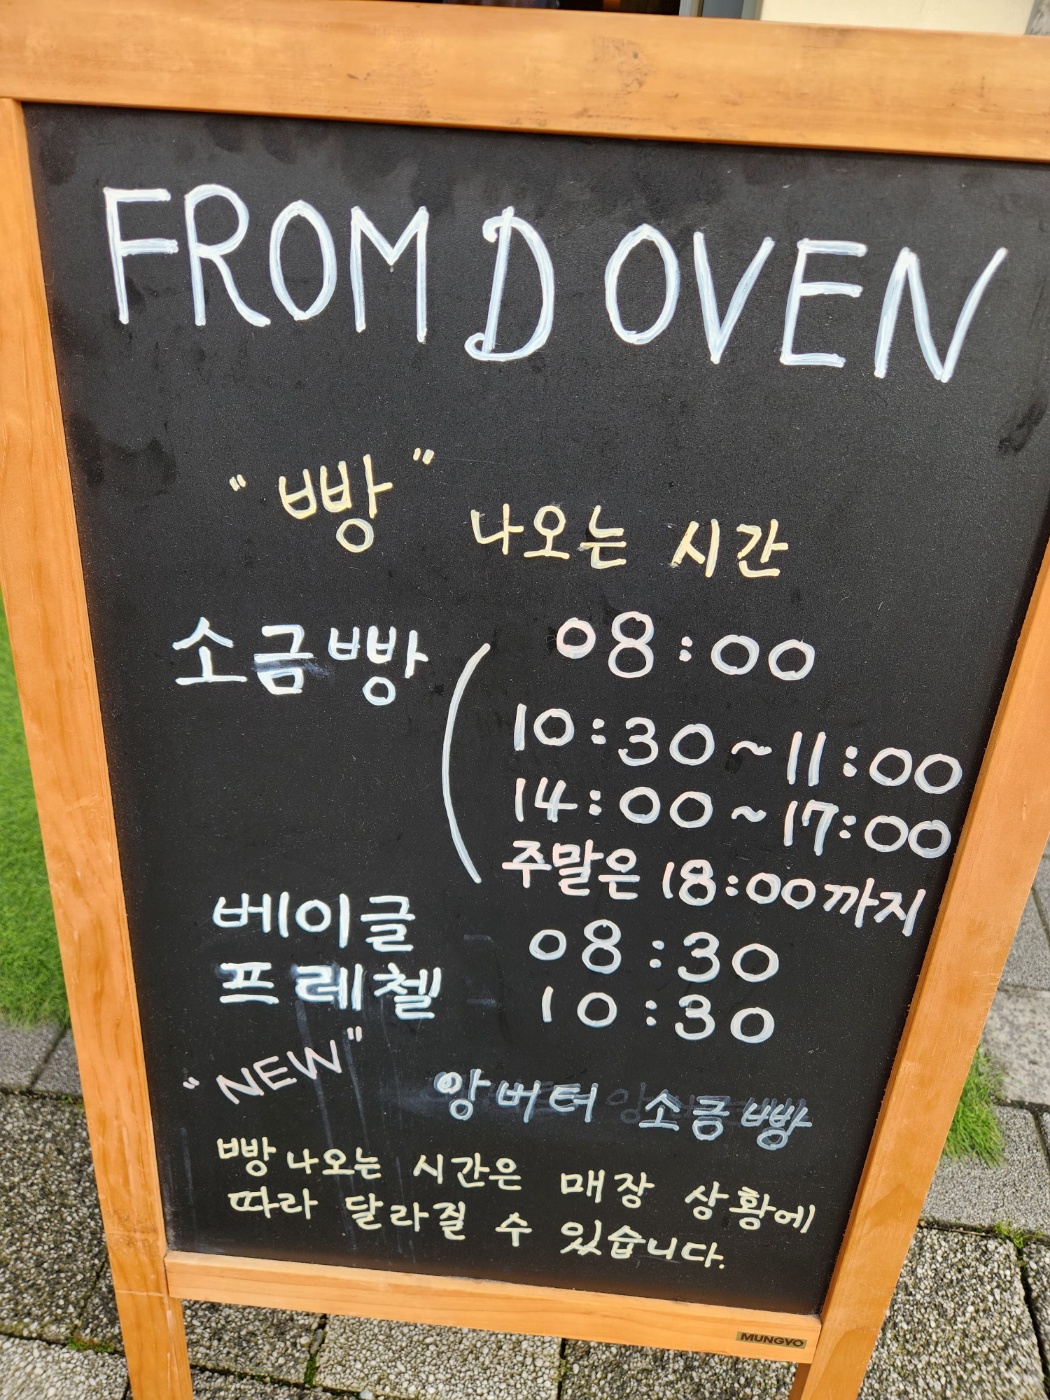 FROM D OVEN
"빵" 나오는 시간
소금빵 ( 08:00
10:30~11:00
14:00~17:00
주말은 18:00까지
베이글 08:30
프레첼 10:30
"NEW" 앙버터 소금빵
빵 나오는 시간은 매장 상황에
따라 달라질 수 있습니다.
MUNGYO